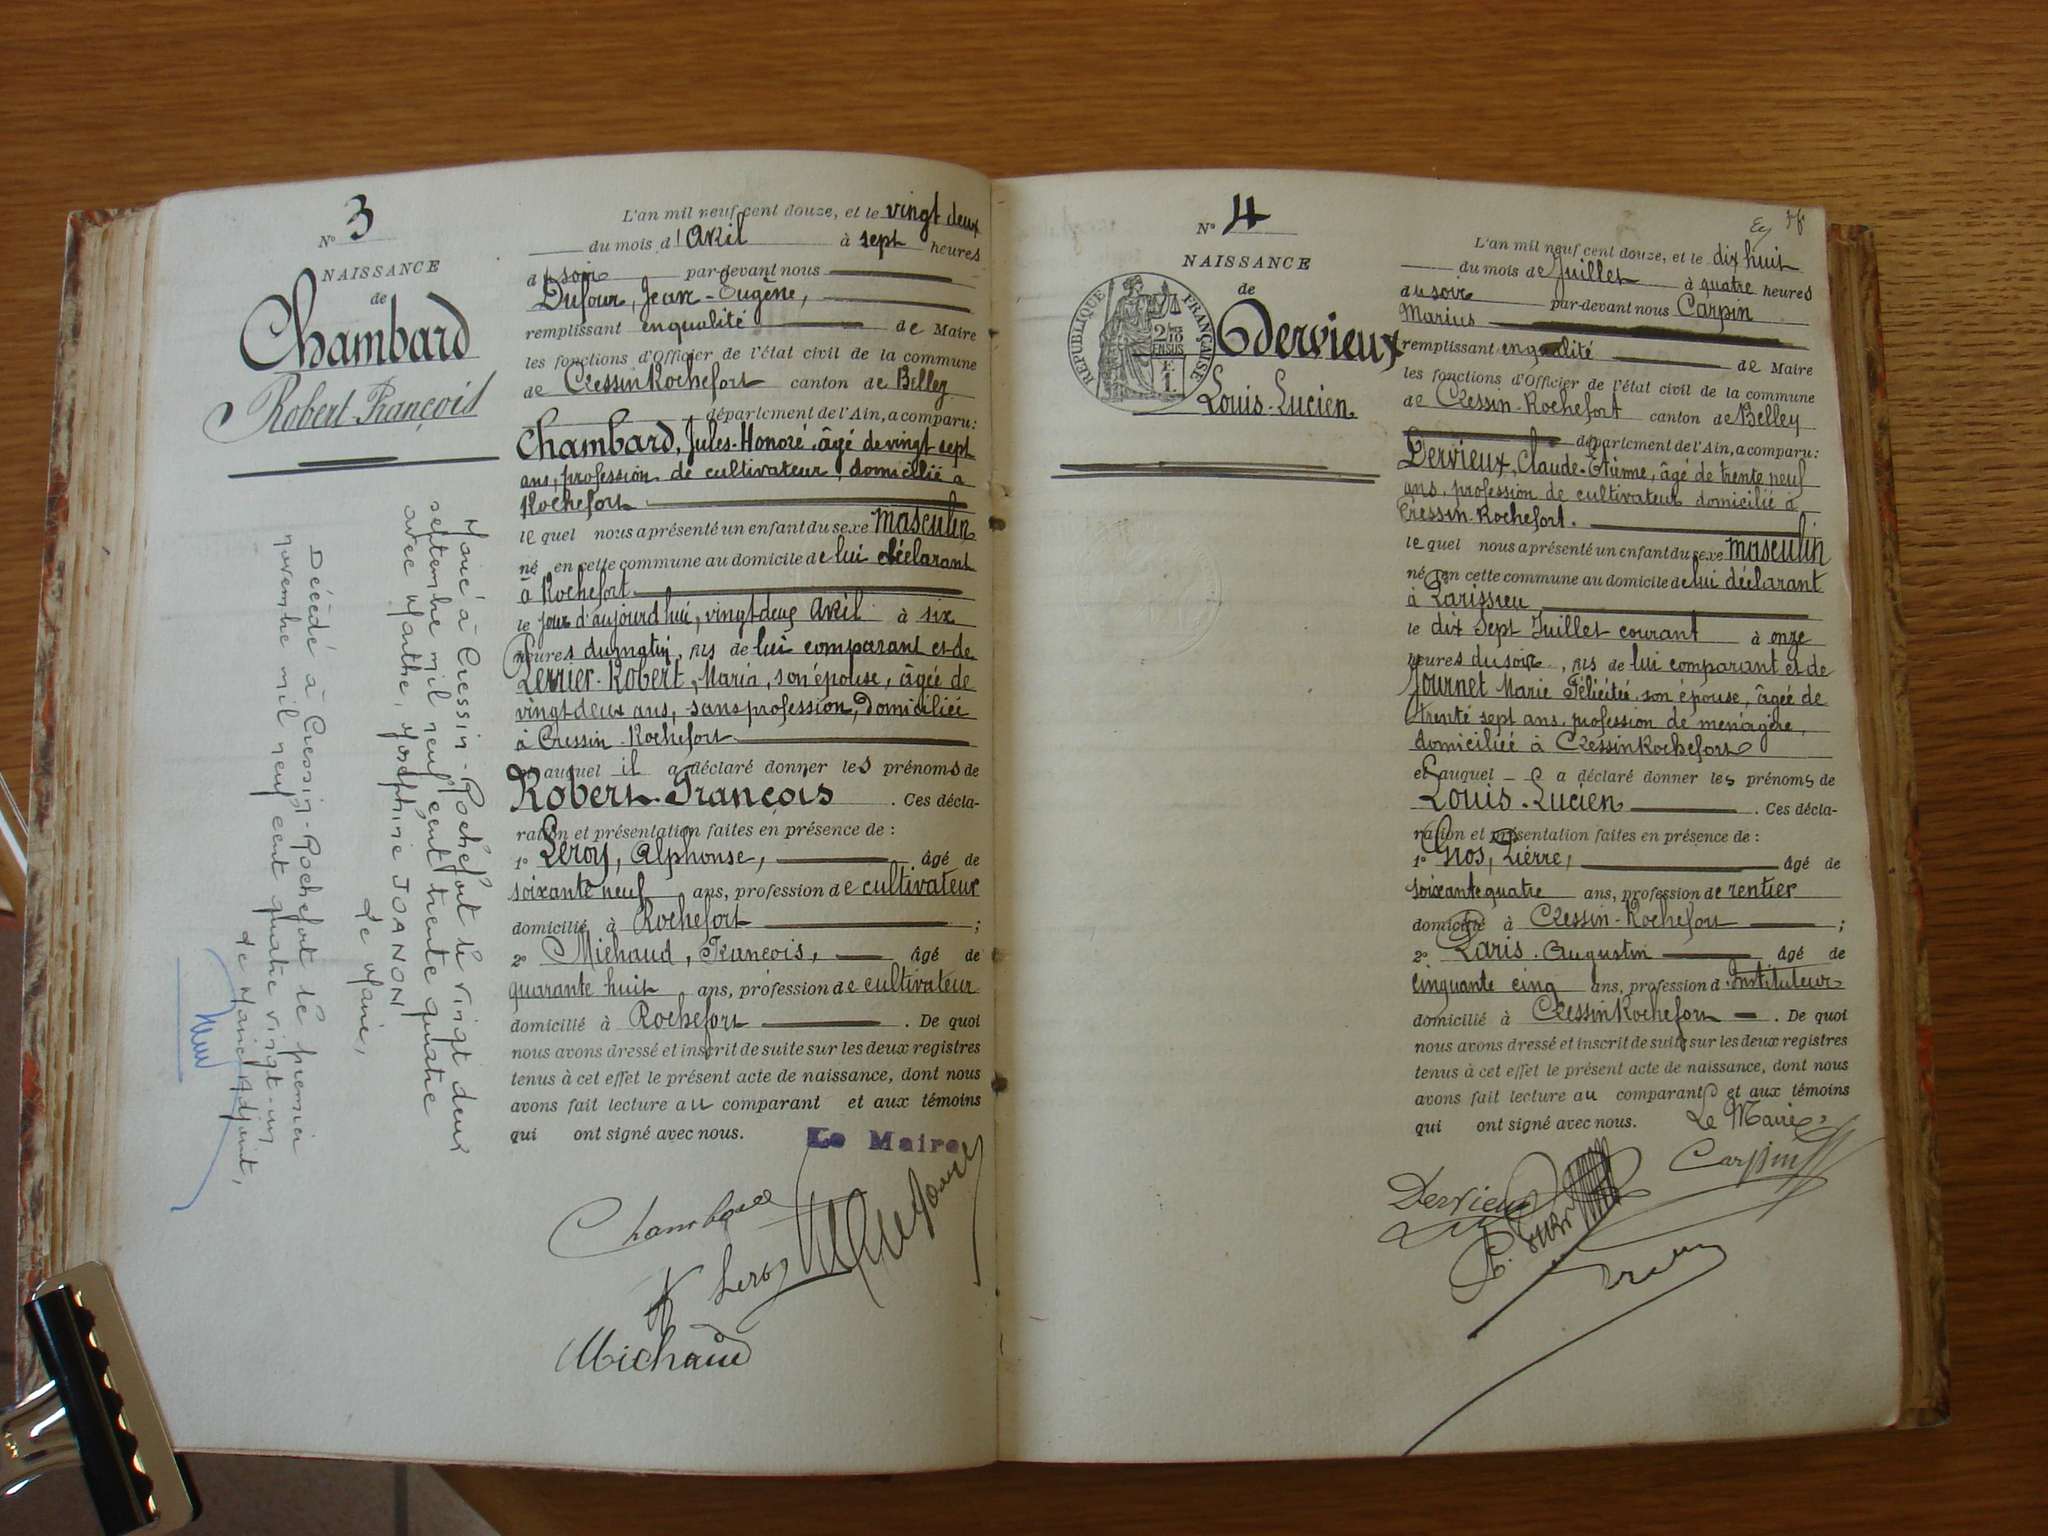 N° 3
NAISSANCE
de
Chambard
Robert François
L'an mil neuf cent douze, et le vingt deux
du mois d'Avril à sept heures
du soir par-devant nous
Dufour, Jean-Eugène,
remplissant en qualité de Maire
les fonctions d'Officier de l'état civil de la commune
de Cressin Rochefort canton de Belley
département de l'Ain, a comparu:
Chambard, Jules-Honoré, âgé de vingt sept
ans, profession de cultivateur, domicilié à
Rochefort
lequel nous a présenté un enfant du sexe masculin
né en cette commune au domicile de lui déclarant
à Rochefort
le jour d'aujourd'hui, vingt deux Avril à six
heures du matin, fils de lui comparant et de
Perrier-Robert, Maria, son épouse, âgée de
vingt deux ans, sans profession, domiciliée
à Cressin-Rochefort
auquel il a déclaré donner les prénoms de
Robert-François . Ces décla-
ration et présentation faites en présence de :
1° Leroy, Alphonse, âgé de
soixante neuf ans, profession de cultivateur
domicilié à Rochefort ;
2° Michaud, François, âgé de
quarante huit ans, profession de cultivateur
domicilié à Rochefort . De quoi
nous avons dressé et inscrit de suite sur les deux registres
tenus à cet effet le présent acte de naissance, dont nous
avons fait lecture au comparant et aux témoins
qui ont signé avec nous. Le Maire
Chambard
Leroy
Michaud
Marié à Cressin-Rochefort le vingt deux
septembre mil neuf cent trente quatre
avec Marthe, Joséphine JOANON
Le Maire,
Décédé à Cressin-Rochefort le premier
novembre mil neuf cent quatre vingt-un
Le Maire Adjoint,
N° 4
NAISSANCE
de
Dervieux
Louis-Lucien
RÉPUBLIQUE FRANÇAISE
2/10 EN SUS
L'an mil neuf cent douze, et le dix huit
du mois de Juillet à quatre heures
du soir par-devant nous Carpin
Marius
remplissant en qualité de Maire
les fonctions d'Officier de l'état civil de la commune
de Cressin-Rochefort canton de Belley
département de l'Ain, a comparu:
Dervieux, Claude-Etienne, âgé de trente neuf
ans, profession de cultivateur domicilié à
Cressin-Rochefort.
lequel nous a présenté un enfant du sexe masculin
né en cette commune au domicile de lui déclarant
à Parissieu
le dix sept Juillet courant à onze
heures du soir, fils de lui comparant et de
Journet Marie Félicitée son épouse, âgée de
trente sept ans, profession de ménagère,
domiciliée à Cressin Rochefort
et auquel il a déclaré donner les prénoms de
Louis-Lucien . Ces décla-
ration et présentation faites en présence de :
1° Gros, Pierre, âgé de
soixante quatre ans, profession de rentier
domicilié à Cressin-Rochefort ;
2° Paris Augustin âgé de
cinquante cinq ans, profession d'Instituteur
domicilié à Cressin Rochefort . De quoi
nous avons dressé et inscrit de suite sur les deux registres
tenus à cet effet le présent acte de naissance, dont nous
avons fait lecture au comparant et aux témoins
qui ont signé avec nous. Le Maire,
Dervieux
Carpin